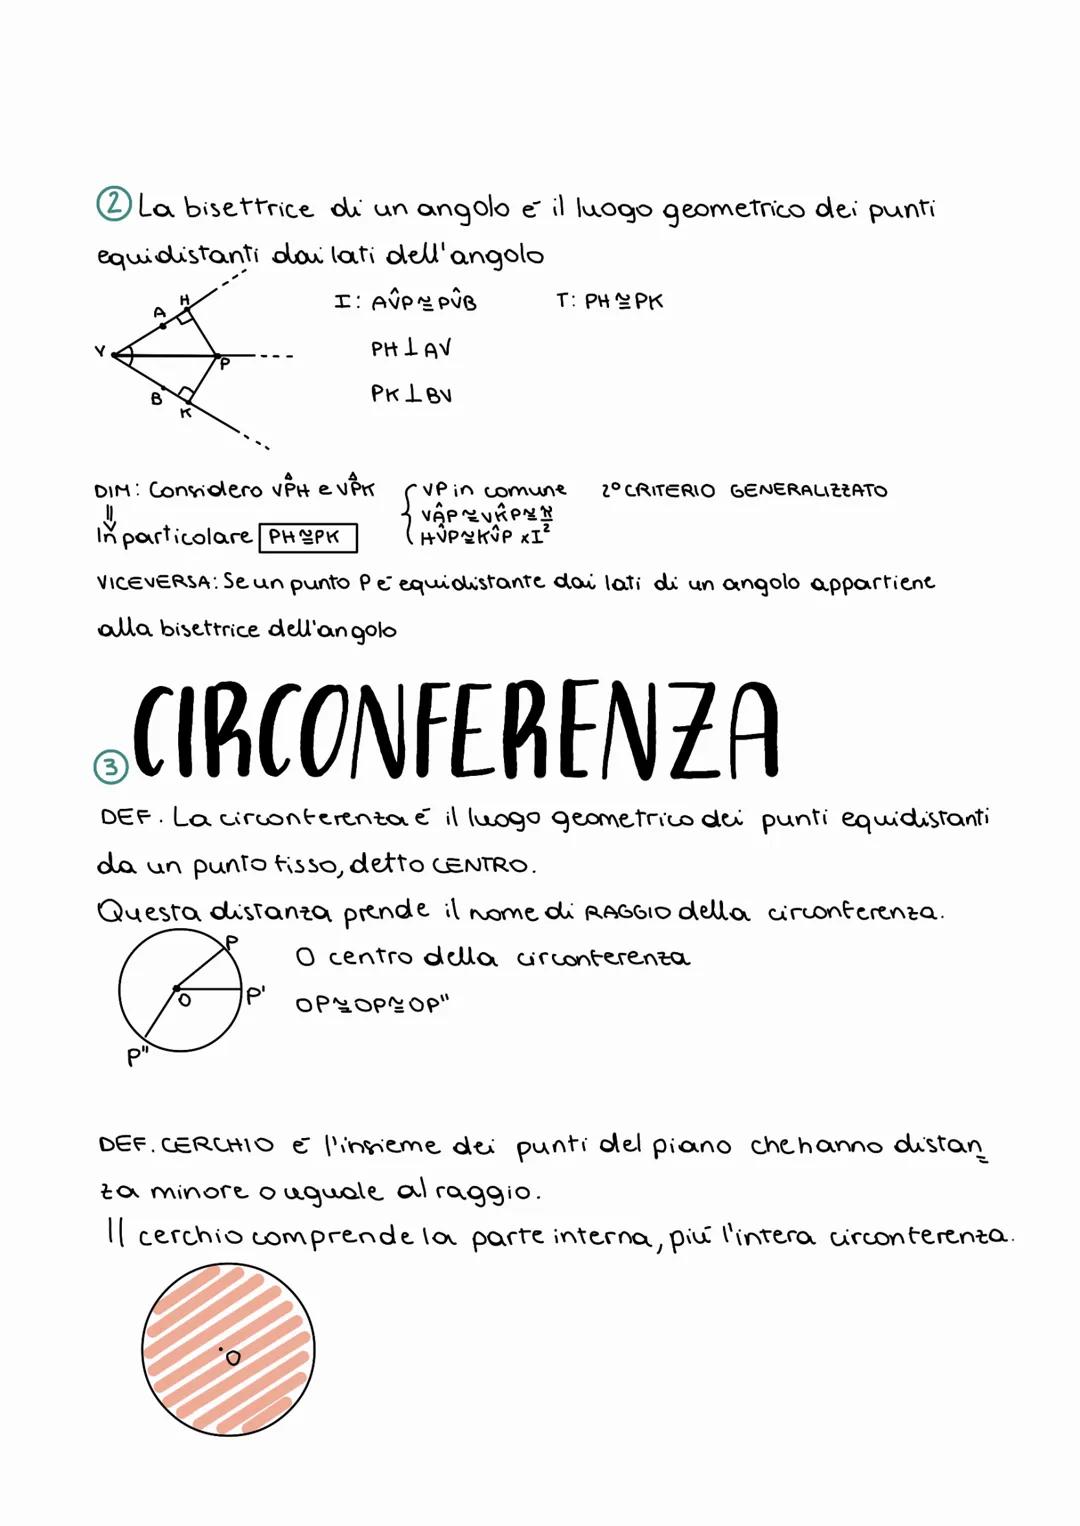 ② La bisettrice di un angolo é il luogo geometrico dei punti
equidistanti dai lati dell'angolo
I: AV̂P≅PV̂B T: PH≅PK
PH⊥AV
PK⊥BV
V A H P B K
DIM: Considero VP̂H e VP̂K { VP in comune 2° CRITERIO GENERALIZZATO
VÂP≅VK̂P≅π/2
⇓
In particolare PH≅PK HV̂P≅KV̂P xI
VICEVERSA: Se un punto P é equidistante dai lati di un angolo appartiene
alla bisettrice dell'angolo
③ CIRCONFERENZA
DEF. La circonferenza é il luogo geometrico dei punti equidistanti
da un punto fisso, detto CENTRO.
Questa distanza prende il nome di RAGGIO della circonferenza.
P
O centro della circonferenza
O P'
OP≅OP≅OP"
P"
DEF. CERCHIO é l'insieme dei punti del piano che hanno distan=
za minore o uguale al raggio.
Il cerchio comprende la parte interna, piú l'intera circonferenza.
O